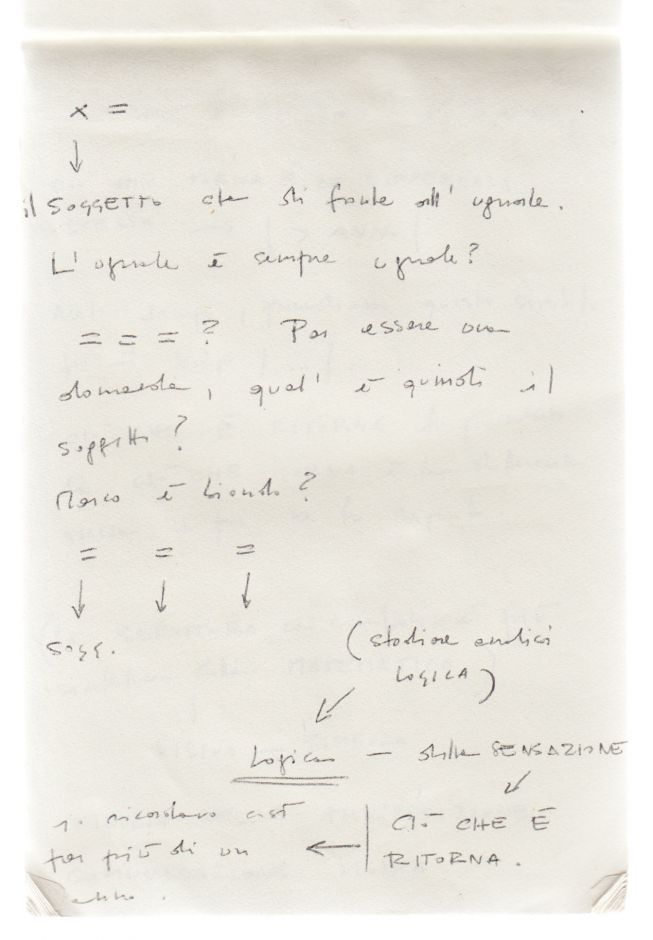 x =
↓
il SOGGETTO che sta fronte all' uguale.
L' uguale è sempre uguale?
= = = ? Per essere una
domanda, qual' è quindi il
soggetto?
Marco è biondo?
= = =
↓ ↓ ↓
Sogg.
(studiare analisi
LOGICA)
Logica — della SENSAZIONE
CIÒ CHE È
RITORNA.
ricordavo così
per più di un